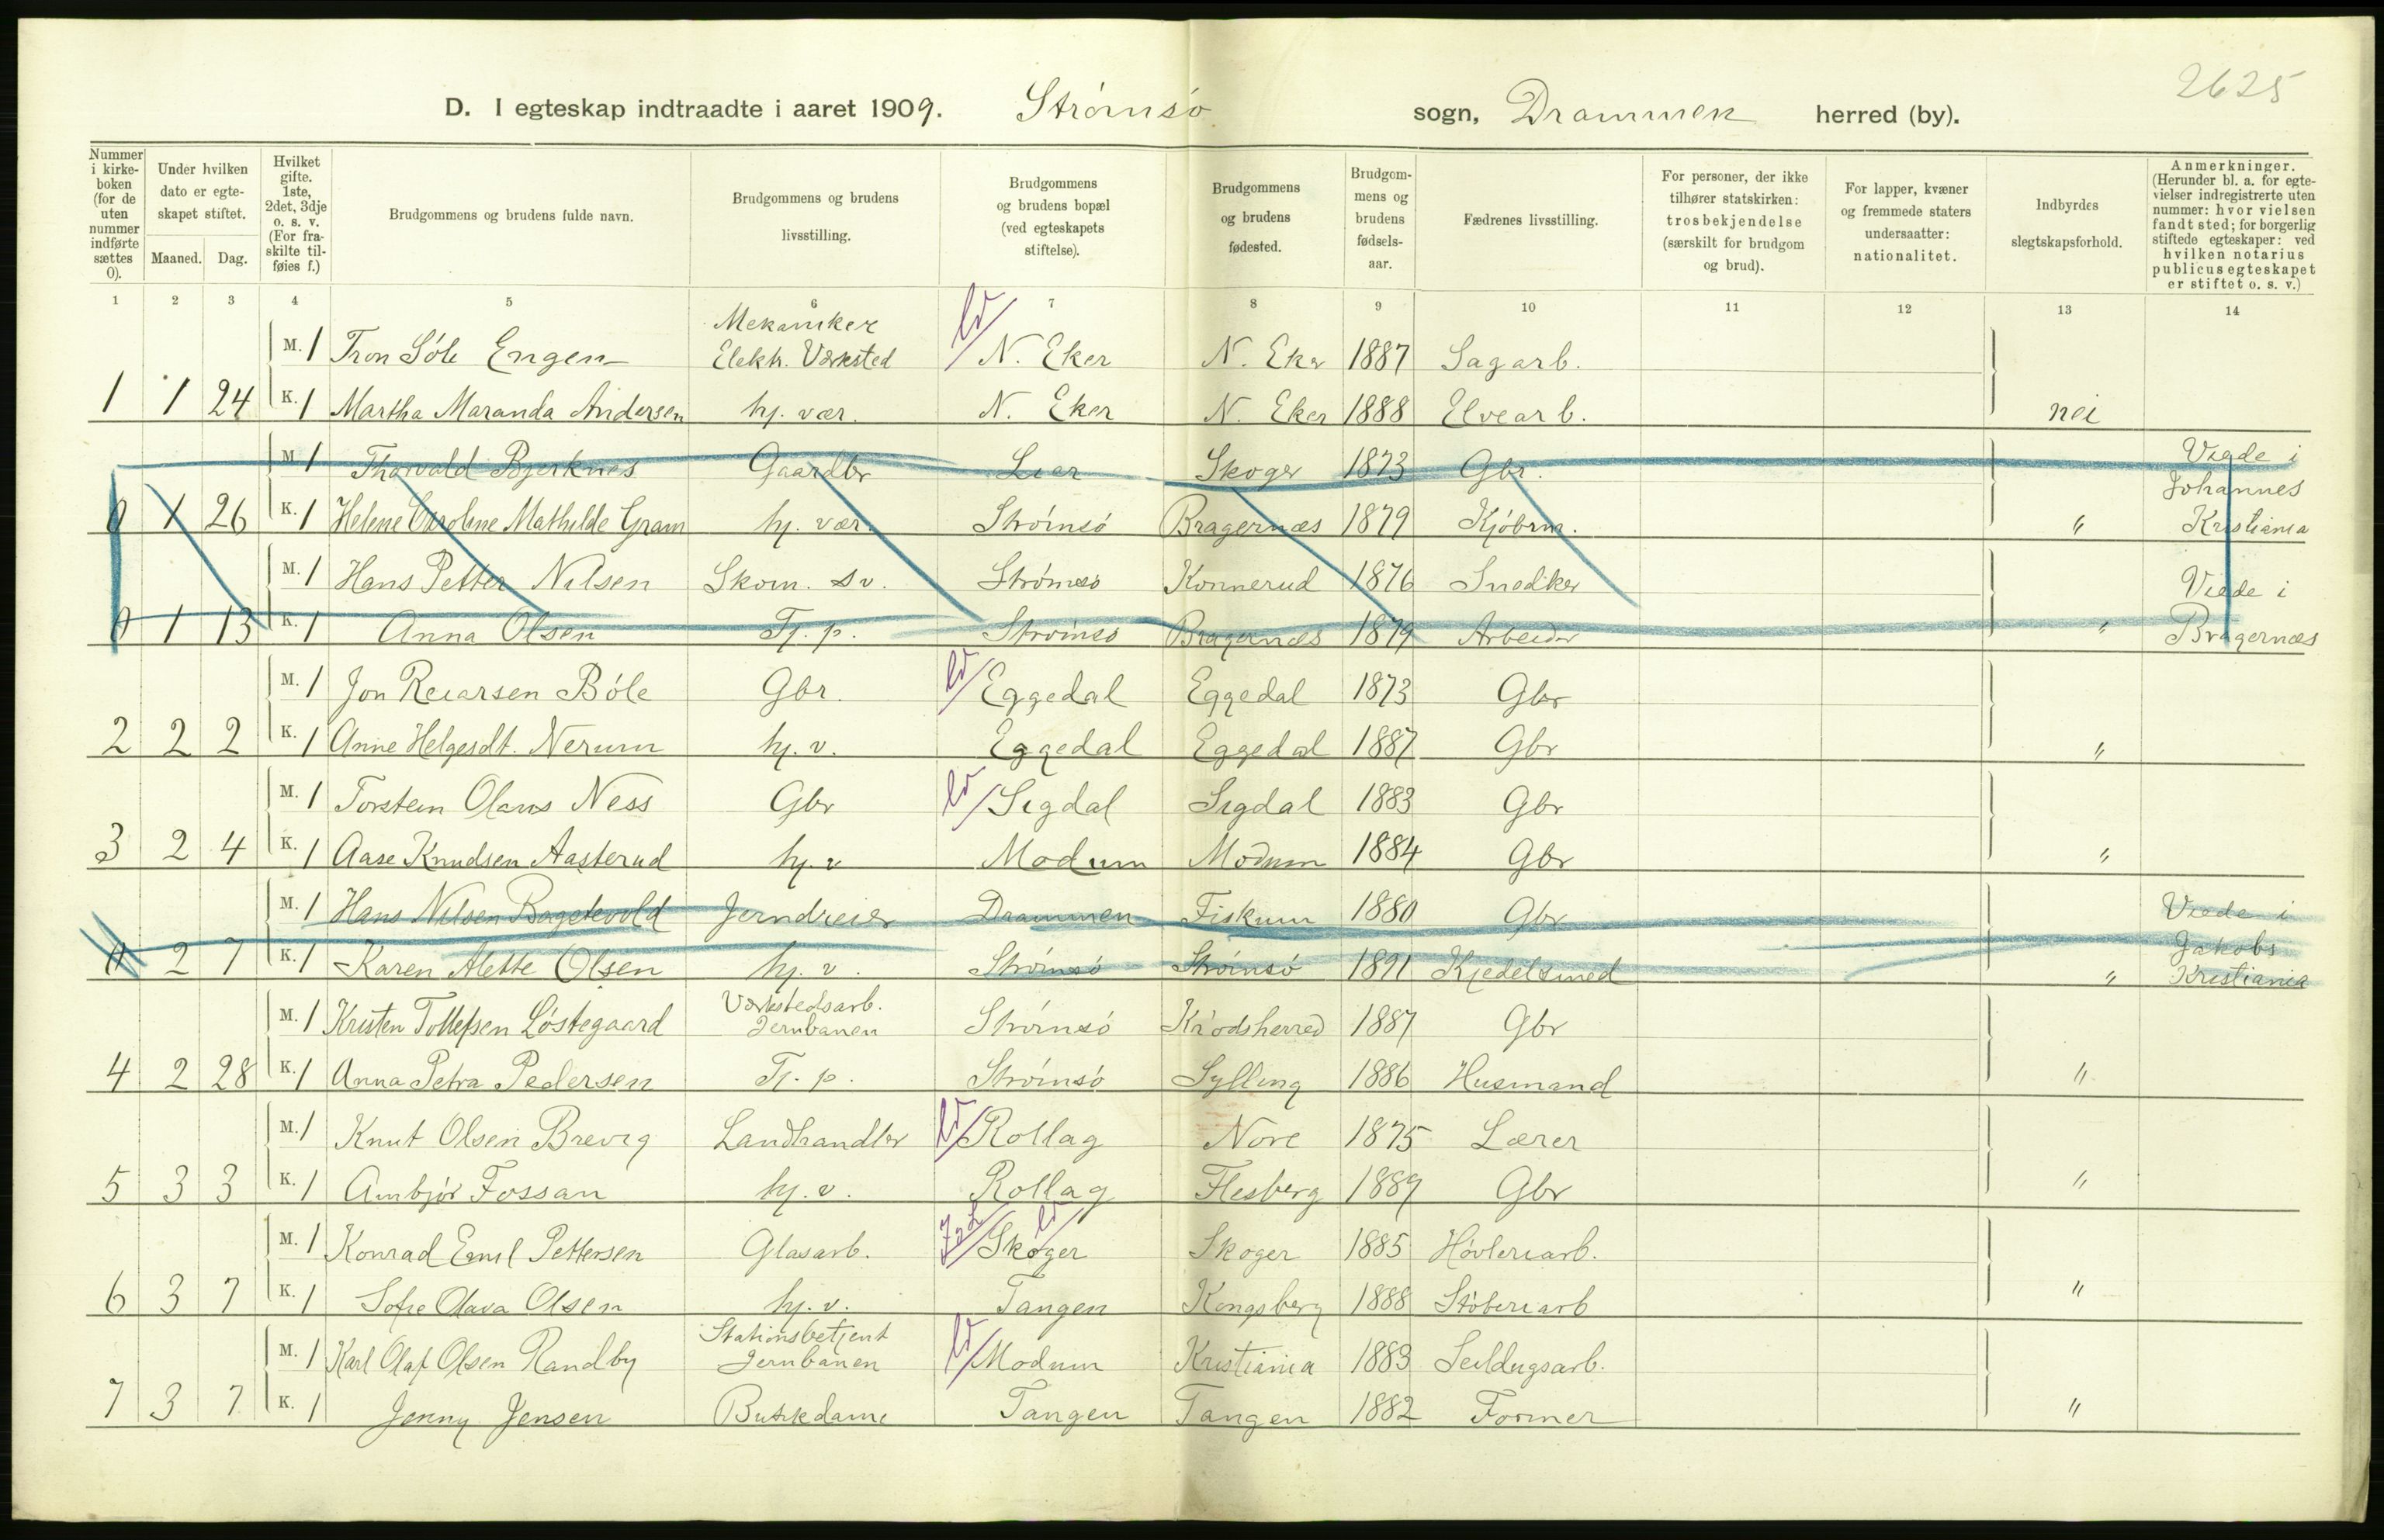 2625
D. I egteskap indtraadte i aaret 1909. Strømsø sogn, Drammen herred (by).
Nummer i kirke-boken (for de uten nummer indførte sættes 0). Under hvilken dato er egte-skapet stiftet. Maaned. Dag. Hvilket gifte. 1ste, 2det, 3dje o. s. v. (For fra-skilte til-føies f.) Brudgommens og brudens fulde navn. Brudgommens og brudens livsstilling. Brudgommens og brudens bopæl (ved egteskapets stiftelse). Brudgommens og brudens fødested. Brudgom-mens og brudens fødsels-aar. Fædrenes livsstilling. For personer, der ikke tilhører statskirken: trosbekjendelse (særskilt for brudgom og brud). For lapper, kvæner og fremmede staters undersaatter: nationalitet. Indbyrdes slegtskapsforhold. Anmerkninger. (Herunder bl. a. for egte-vielser indregistrerte uten nummer: hvor vielsen fandt sted; for borgerlig stiftede egteskaper: ved hvilken notarius publicus egteskapet er stiftet o. s. v.)
1 2 3 4 5 6 7 8 9 10 11 12 13 14
M. 1 Tron Søle Engen Mekaniker Elektr. Værksted ld N. Eker N. Eker 1887 Sagarb.
1 1 24 K. 1 Martha Maranda Andersen hj. vær. N. Eker N. Eker 1888 Elvearb. nei
M 1 Thorvald Bjerknes Gaardbr Lier Skoger 1873 Gbr. Viede i Johannes
0 1 26 K. 1 Helene Caroline Mathilde Gram hj. vær. Strømsø Bragernæs 1879 Kjøbm. " Kristiania
M. 1 Hans Petter Nilsen Skom. sv. Strømsø Konnerud 1876 Snedker Viede i
0 1 13 K. 1 Anna Olsen Tj. p. Strømsø Bragernæs 1879 Arbeider " Bragernæs
M. 1 Jon Reiarsen Bøle Gbr. ld Eggedal Eggedal 1873 Gbr
2 2 2 K. 1 Anne Helgesdt. Nerum hj. v. Eggedal Eggedal 1887 Gbr "
M. 1 Torstein Olans Ness Gbr ld Sigdal Sigdal 1883 Gbr
3 2 4 K. 1 Aase Knudsen Aasterud hj. v Modum Modum 1884 Gbr "
M. 1 Hans Nilsen Jerndreier Drammen Fiskum 1880 Gbr Viede i Jakobs
0 2 7 K. 1 Karen Alette Olsen hj. v. Strømsø Strømsø 1891 Kjedelsmed " Kristiania
M. 1 Kristen Tollefsen Løstegaard Værkstedsarb. Jernbanen Strømsø Krødsherred 1887 Gbr
4 2 28 K. 1 Anna Petra Pedersen Tj. p. Strømsø Sylling 1886 Husmand "
M. 1 Knut Olsen Brevig Landhandler ld Rollag Nore 1875 Lærer
5 3 3 K. 1 Ambjør Fossan hj. v. Rollag Flesberg 1889 Gbr "
M. 1 Konrad Emil Pettersen Glasarb. ld Skoger Skoger 1885 Høvleriarb.
6 3 7 K. 1 Sofie Olava Olsen hj. v. Tangen Kongsberg 1888 Støberiarb "
M. 1 Karl Olaf Olsen Randby Stationsbetjent Jernbanen ld Modum Kristiania 1883 Seildugsarb.
7 3 7 K. 1 Jenny Jensen Butikdame Tangen Tangen 1882 Former "